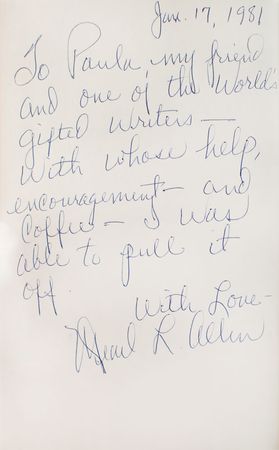 Jan. 17, 1981
To Paula, my friend
and one of the World's
gifted writers —
With whose help,
encouragement — and
Coffee — I was
able to pull it
off.
With Love —
L. Allen